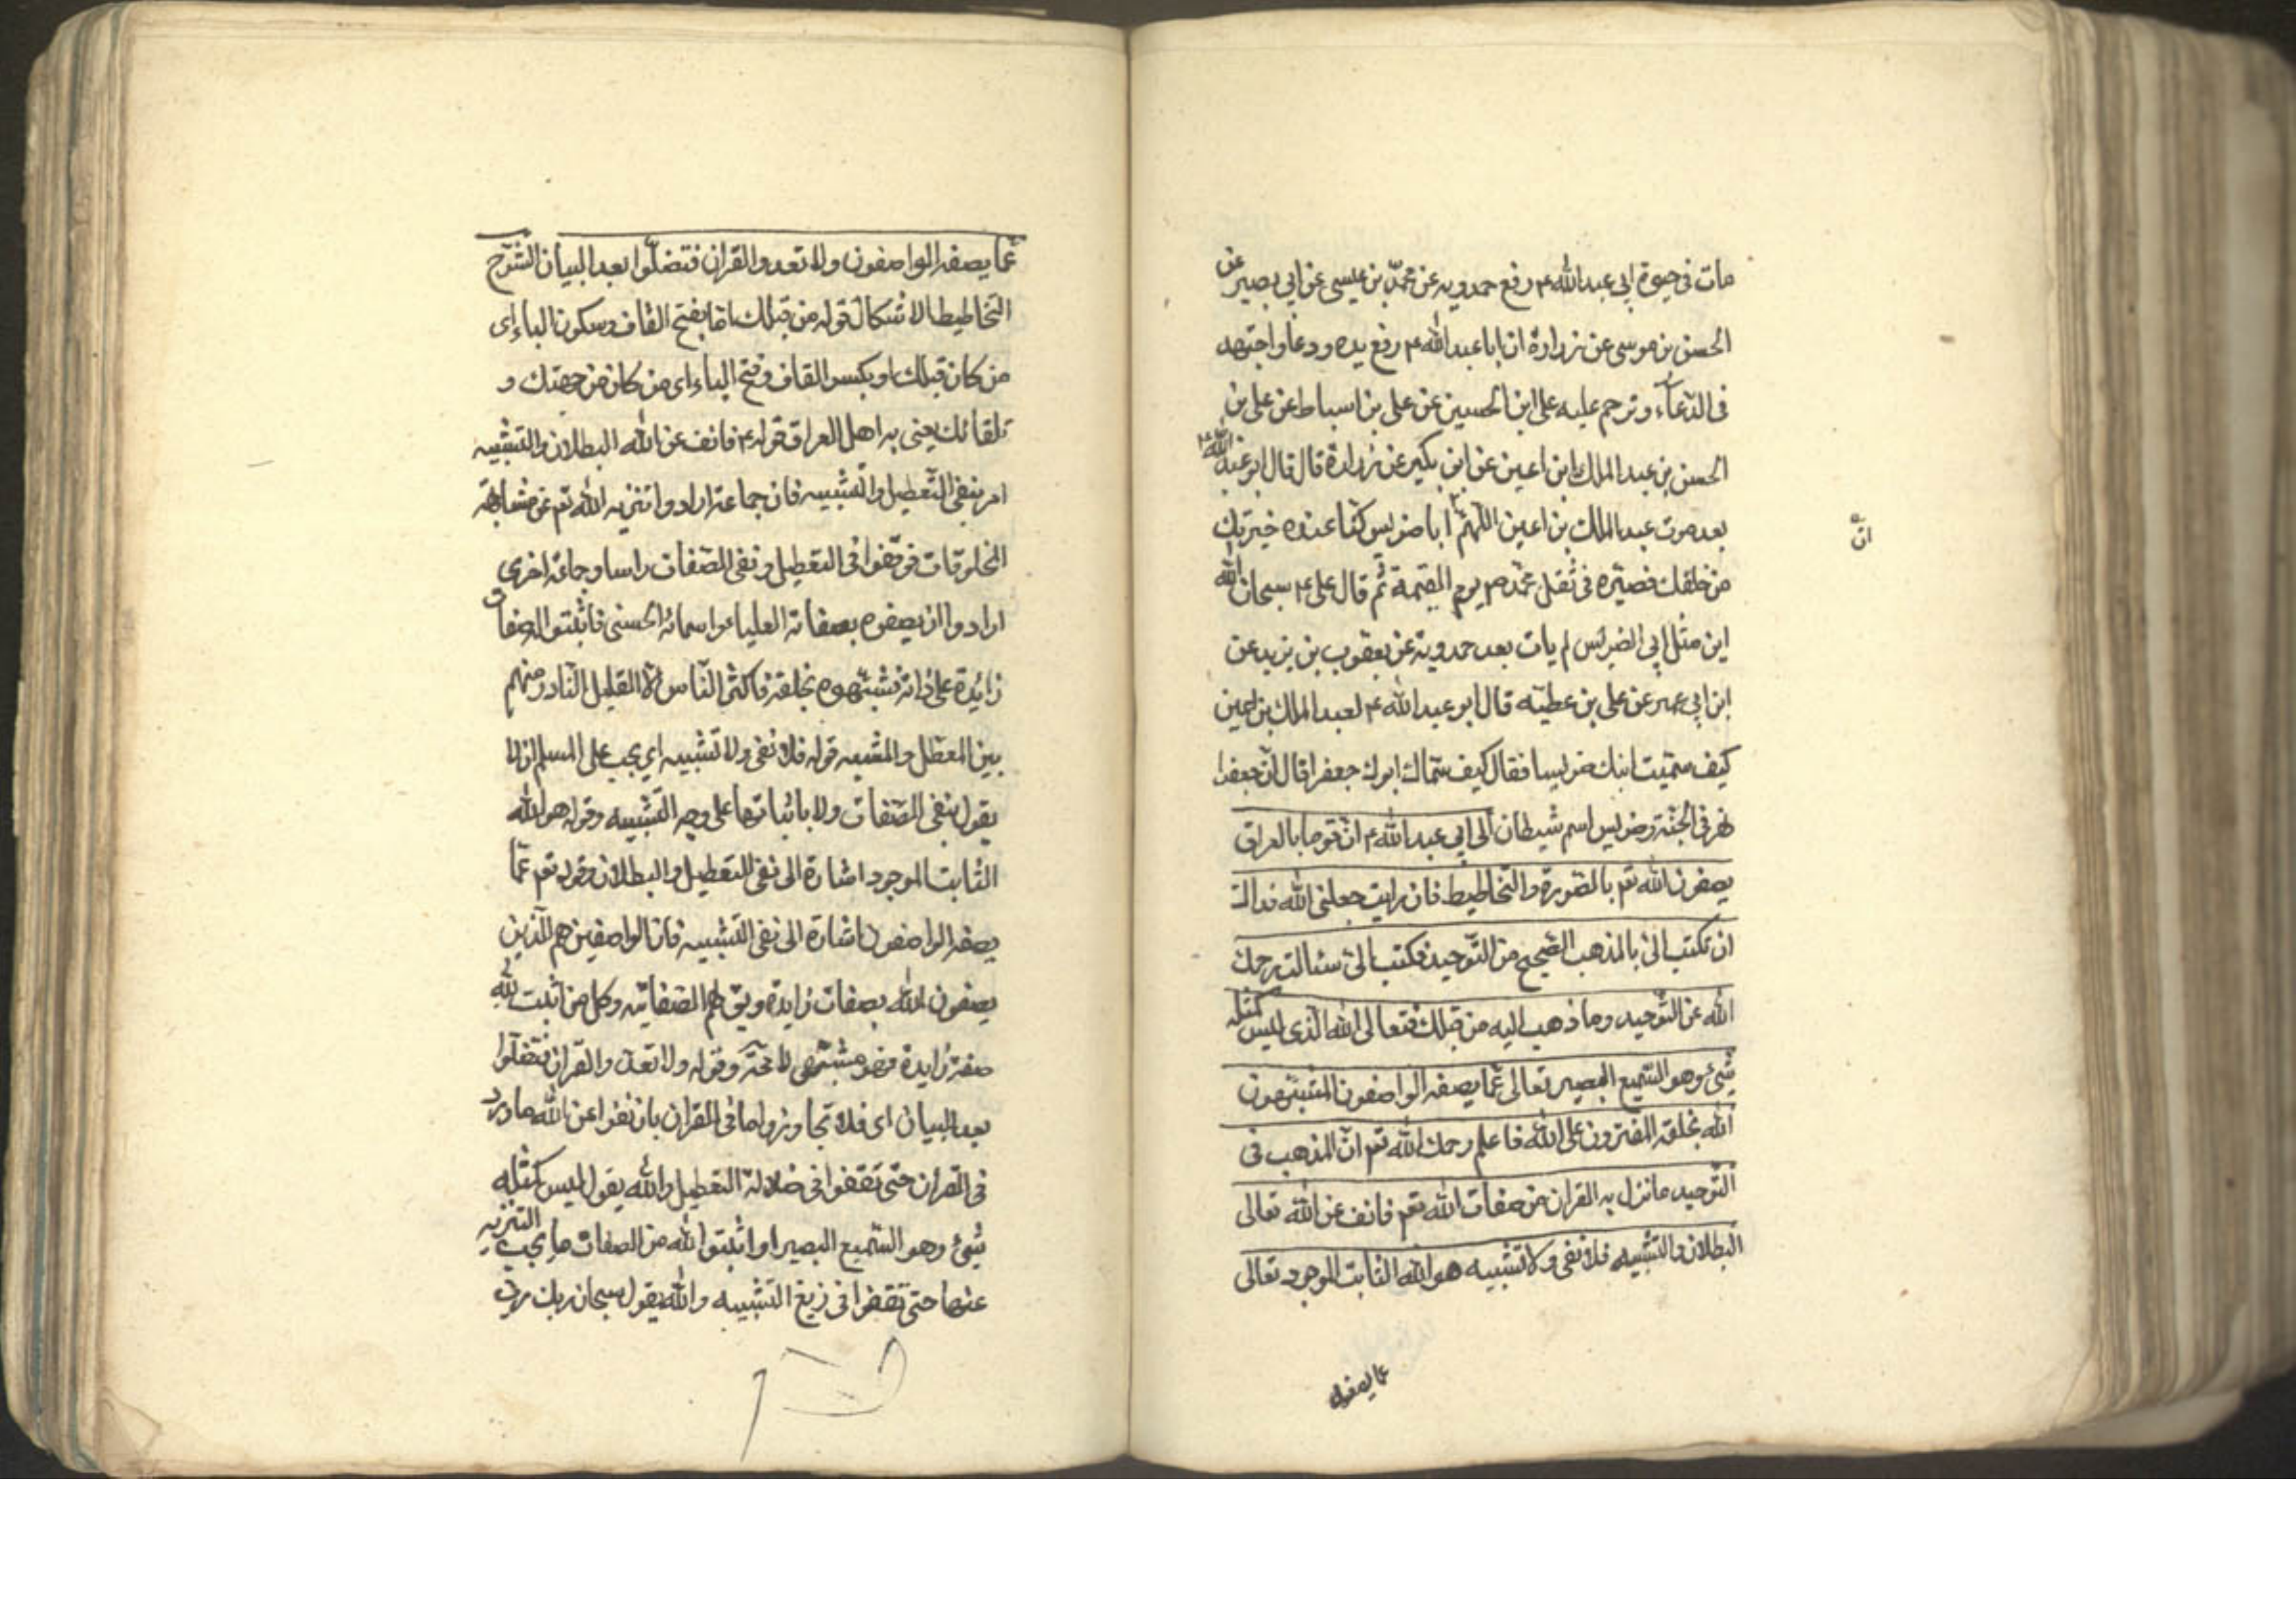 مات فى حيوة ابى عبدالله ع رفع حمدويه عن محمد بن عيسى عن ابى بصير عن
الحسن بن موسى عن زرارة ان ابا عبدالله ع رفع يده ودعا واجتهد
فى الدعاء وترحم عليه على ابن الحسين عن على بن اسباط عن على بن
الحسن بن عبد الملك ابن اعين عن ابن بكير عن زرارة قال قال ابو عبد الله ع
بعد موت عبد الملك بن اعين اللهم ان ابا ضريس كنا عنده خيرتك
من خلقك فصيره فى ثقل محمد ص يوم القيمة ثم قال على ع سبحان الله
اين مثل ابى الضريس لم يات بعد حمدويه عن يعقوب بن يزيد عن
ابن ابى عمير عن على بن عطيه قال ابو عبدالله ع لعبد الملك بن اعين
كيف سميت ابنك ضريسا فقال كيف سماك ابوك جعفرا قال ان جعفرا
نهر فى الجنة وضريس اسم شيطان الى ابى عبدالله ع ان قوما بالعراق
يصفون الله تعم بالصورة والتخاطيط فان رايت جعلنى الله فداك
ان تكتب الى بالمذهب الصحيح من التوحيد فكتب الى سئالت رحمك
الله عن التوحيد وما ذهب اليه من قبلك فتعالى الله الذى ليس كمثله
شئ وهو السميع البصير تعالى عما يصفه الواصفون المشبهون
الله بخلقه المفترون على الله فاعلم رحمك الله تعم ان المذهب فى
التوحيد ما نزل به القران من صفات الله تعم فانف عن الله تعالى
البطلان والتشبيه فلا نفى ولا تشبيه هو الله الثابت الموجود تعالى
عما يصفه
ان
عما يصفه الواصفون ولا تعدوا القران فتضلوا بعد البيان الشرح
التخاطيط الاشكال قوله من قبلك اما بفتح القاف وسكون الباء اى
من كان قبلك او بكسر القاف وفتح الباء اى من كان من جهتك و
تلقائك يعنى به اهل العراق قوله ع فانف عن الله البطلان والتشبيه
امر بنفى التعطيل والتشبيه فان جماعة ارادوا تنزيه الله تعم عن مشابهة
المخلوقات فوقعوا فى التعطيل ونفى الصفات راسا وجماعة اخرى
ارادوا ان يصفوه بصفاته العليا واسمائه الحسنى فاثبتوا الصفات
زائدة على ذاته فشبهوه بخلقه فاكثر الناس الا القليل النادر منهم
بين المعطل والمشبه قوله فلا نفى ولا تشبيه اى يجب على المسلم ان لا
يقول بنفى الصفات ولا باثباتها على وجه التشبيه وقوله هو الله
الثابت الموجود اشارة الى نفى التعطيل والبطلان وقوله تعم عما
يصفه الواصفون اشارة الى نفى التشبيه فان الواصفين هم الذين
يصفون الله بصفات زايدة ويق لهم الصفاتيه وكل من اثبت لله
صفة زايدة فهو مشبه لا محة وقوله ولا تعدوا القران فتضلوا
بعد البيان اى فلا تجاوزوا ما فى القران بان تنفوا عن الله ما ورد
فى القران حتى تقعوا فى ضلالة التعطيل والله يقول ليس كمثله
شئ وهو السميع البصير او اثبتوا لله من الصفات ما يجب التنزيه
عنها حتى تقعوا فى زيغ التشبيه والله يقول سبحان ربك رب